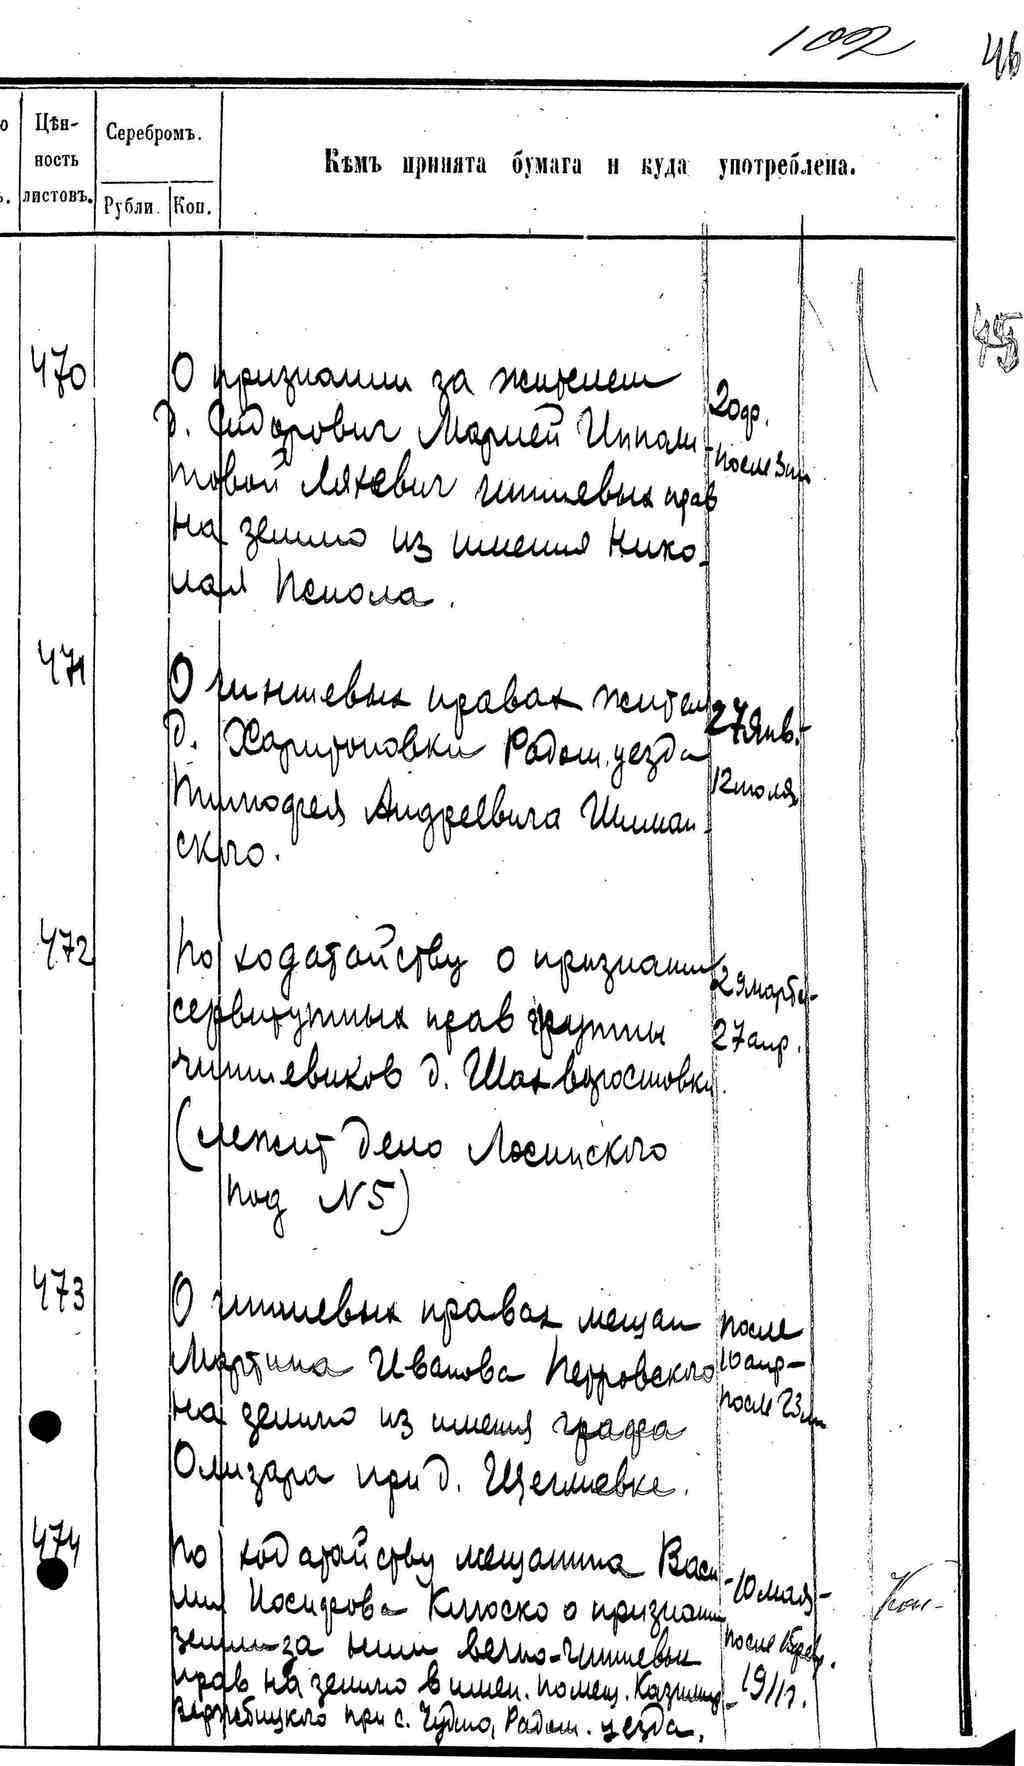 102
46
Цѣн-
ность
листовъ.
Серебромъ.
Рубли.
Коп.
Кѣмъ принята бумага и куда употреблена.
45
470
О признании за жителем
д. Сидорович Марией Ипполи-
товой Ляхевич чиншевых прав
на землю из имения Нико-
лая Псиола.
20 фр.
после 3
471
О чиншевых правах жител
д. Харитоновки Радом. уезда
Тимофея Андреевича Шиман-
ского.
27 Янв.-
12 июля
472
По ходатайству о признании
сервитутных прав группы
чиншевиков д. Шахворостовки.
(лежит дело Лосинского
под N 5)
29 марта-
27 апр.
473
О чиншевых правах мещан
Мартина Иванова Петровского
на землю из имения графа
Олизара при д. Щеглиевке.
после
10 апр-
после 23
474
По ходатайству мещанина Васи-
лия Иосифова Клюско о признании
за ним вечно-чиншевых
прав на землю в имен. помещ. Казимир-
Вержбицкого при с. Чудно, Радом. уезда.
10 мая-
после 15
1911 г.